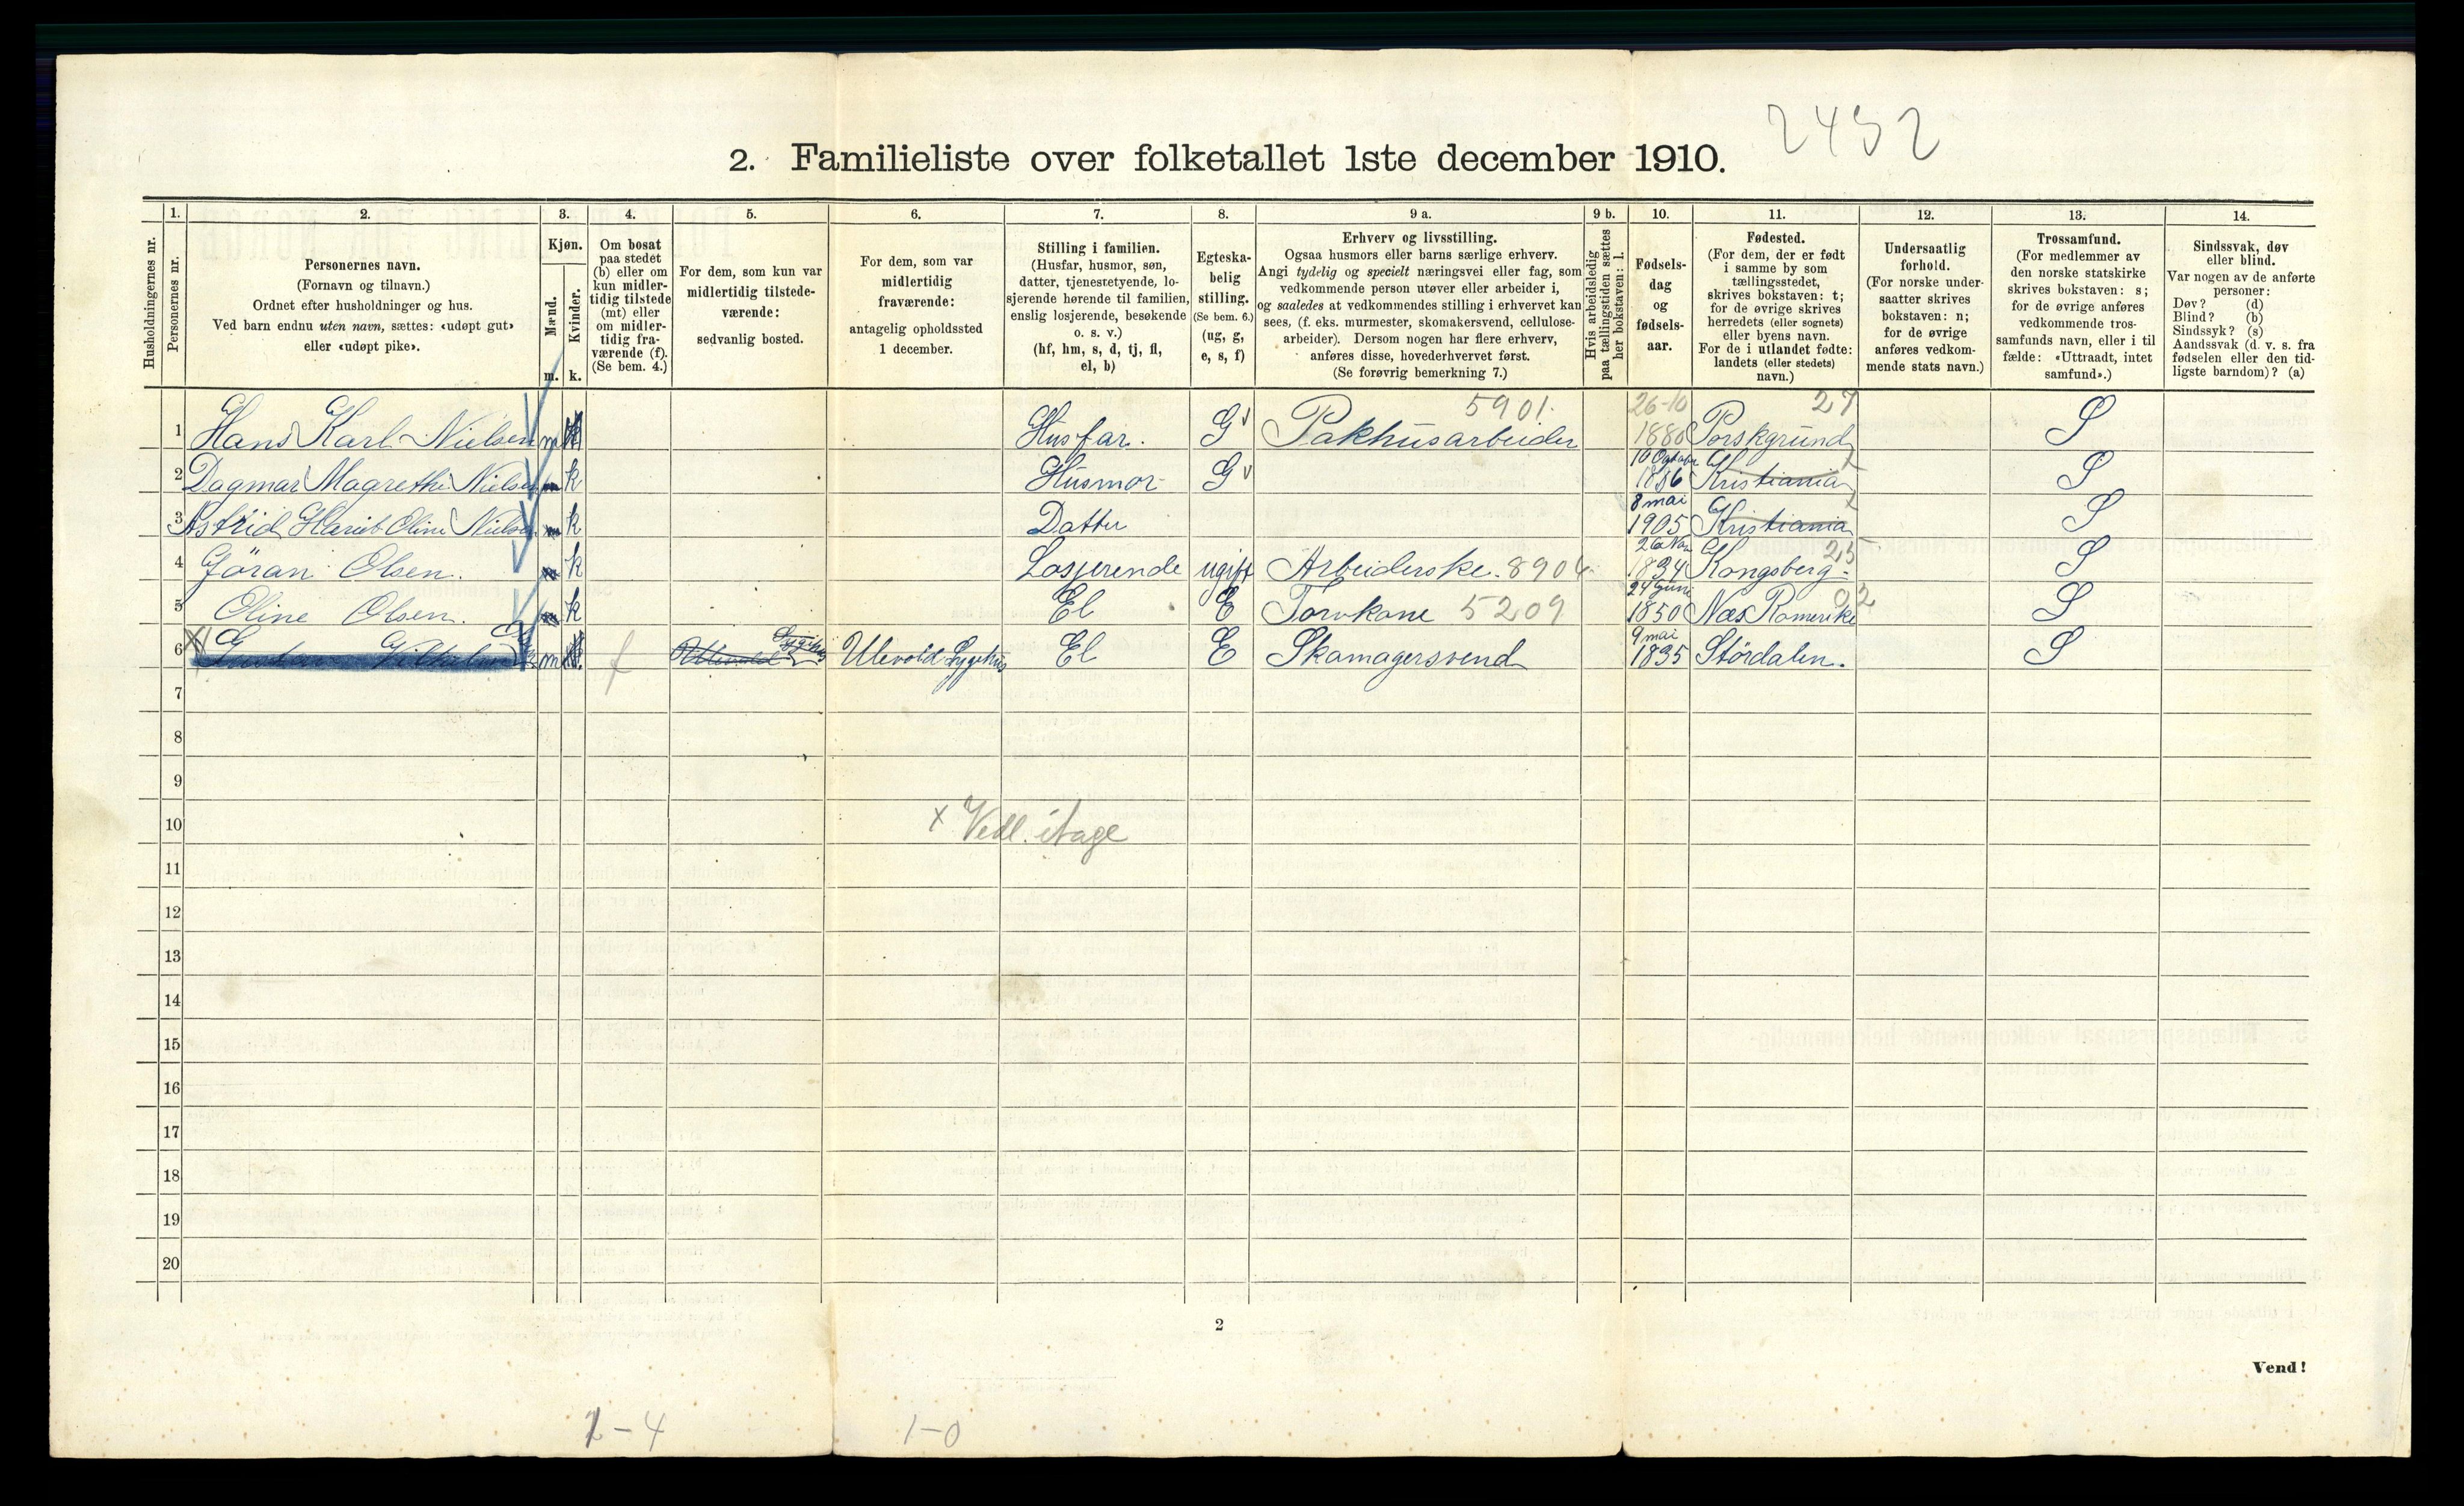 2452
2. Familieliste over folketallet 1ste december 1910.
Husholdningernes nr.
1. Personernes nr.
2. Personernes navn.
(Fornavn og tilnavn.)
Ordnet efter husholdninger og hus.
Ved barn endnu uten navn, sættes: «udøpt gut»
eller «udøpt pike».
3. Kjøn.
Mænd. m.
Kvinder. k.
4. Om bosat
paa stedet
(b) eller om
kun midler-
tidig tilstede
(mt) eller
om midler-
tidig fra-
værende (f).
(Se bem. 4.)
5. For dem, som kun var
midlertidig tilstede-
værende:
sedvanlig bosted.
6. For dem, som var
midlertidig
fraværende:
antagelig opholdssted
1 december.
7. Stilling i familien.
(Husfar, husmor, søn,
datter, tjenestetyende, lo-
sjerende hørende til familien,
enslig losjerende, besøkende
o. s. v.)
(hf, hm, s, d, tj, fl,
el, b)
8. Egteska-
belig
stilling.
(Se bem. 6.)
(ug, g,
e, s, f)
9 a. Erhverv og livsstilling.
Ogsaa husmors eller barns særlige erhverv.
Angi tydelig og specielt næringsvei eller fag, som
vedkommende person utøver eller arbeider i,
og saaledes at vedkommendes stilling i erhvervet kan
sees, (f. eks. murmester, skomakersvend, cellulose-
arbeider). Dersom nogen har flere erhverv,
anføres disse, hovederhvervet først.
(Se forøvrig bemerkning 7.)
9 b. Hvis arbeidsledig
paa tællingstiden sættes
her bokstaven: l.
10. Fødsels-
dag
og
fødsels-
aar.
11. Fødested.
(For dem, der er født
i samme by som
tællingsstedet,
skrives bokstaven: t;
for de øvrige skrives
herredets (eller sognets)
eller byens navn.
For de i utlandet fødte:
landets (eller stedets)
navn.)
12. Undersaatlig
forhold.
(For norske under-
saatter skrives
bokstaven: n;
for de øvrige
anføres vedkom-
mende stats navn.)
13. Trossamfund.
(For medlemmer av
den norske statskirke
skrives bokstaven: s;
for de øvrige anføres
vedkommende tros-
samfunds navn, eller i til
fælde: «Uttraadt, intet
samfund».)
14. Sindssvak, døv
eller blind.
Var nogen av de anførte
personer:
Døv? (d)
Blind? (b)
Sindssyk? (s)
Aandssvak (d. v. s. fra
fødselen eller den tid-
ligste barndom)? (a)
1 Hans Karl Nielsen m k Husfar. G Pakhusarbeider 5901 26-10 1880 Porskgrund 27 S
2 Dagmar Magrethe Nielsen m k Husmor G 10 Ogtober 1886 Kristiania t S
3 Astrid Hariet Oline Nielsen m k Datter 8 mai 1905 Kristiania t S
4 Göran Olsen. m k Losjerende ugift Arbeiderske. 8904 26 Nov 1834 Kongsberg. 25 S
5 Oline Olsen. m k El E Torvkone 5209 24 Juni 1850 Næs Romerike 02 S
6 X Gustav Vilhelm m k f Ulevold Sygehus Ulevold Sygehus El E Skomagersvend 9 mai 1835 Stördalen. S
7
8
9
10
x Vedl. itage
11
12
13
14
15
16
17
18
19
20
2
Vend!
2-4 1-0